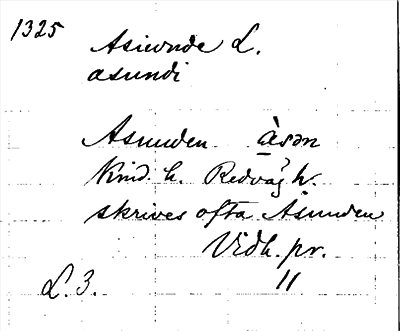 1325
Asiunde L.
asundi
Asunden àsən
Kind. h. Redväg h.
skrives ofta Åsunden
Vidh. pr.
L. 3. 11